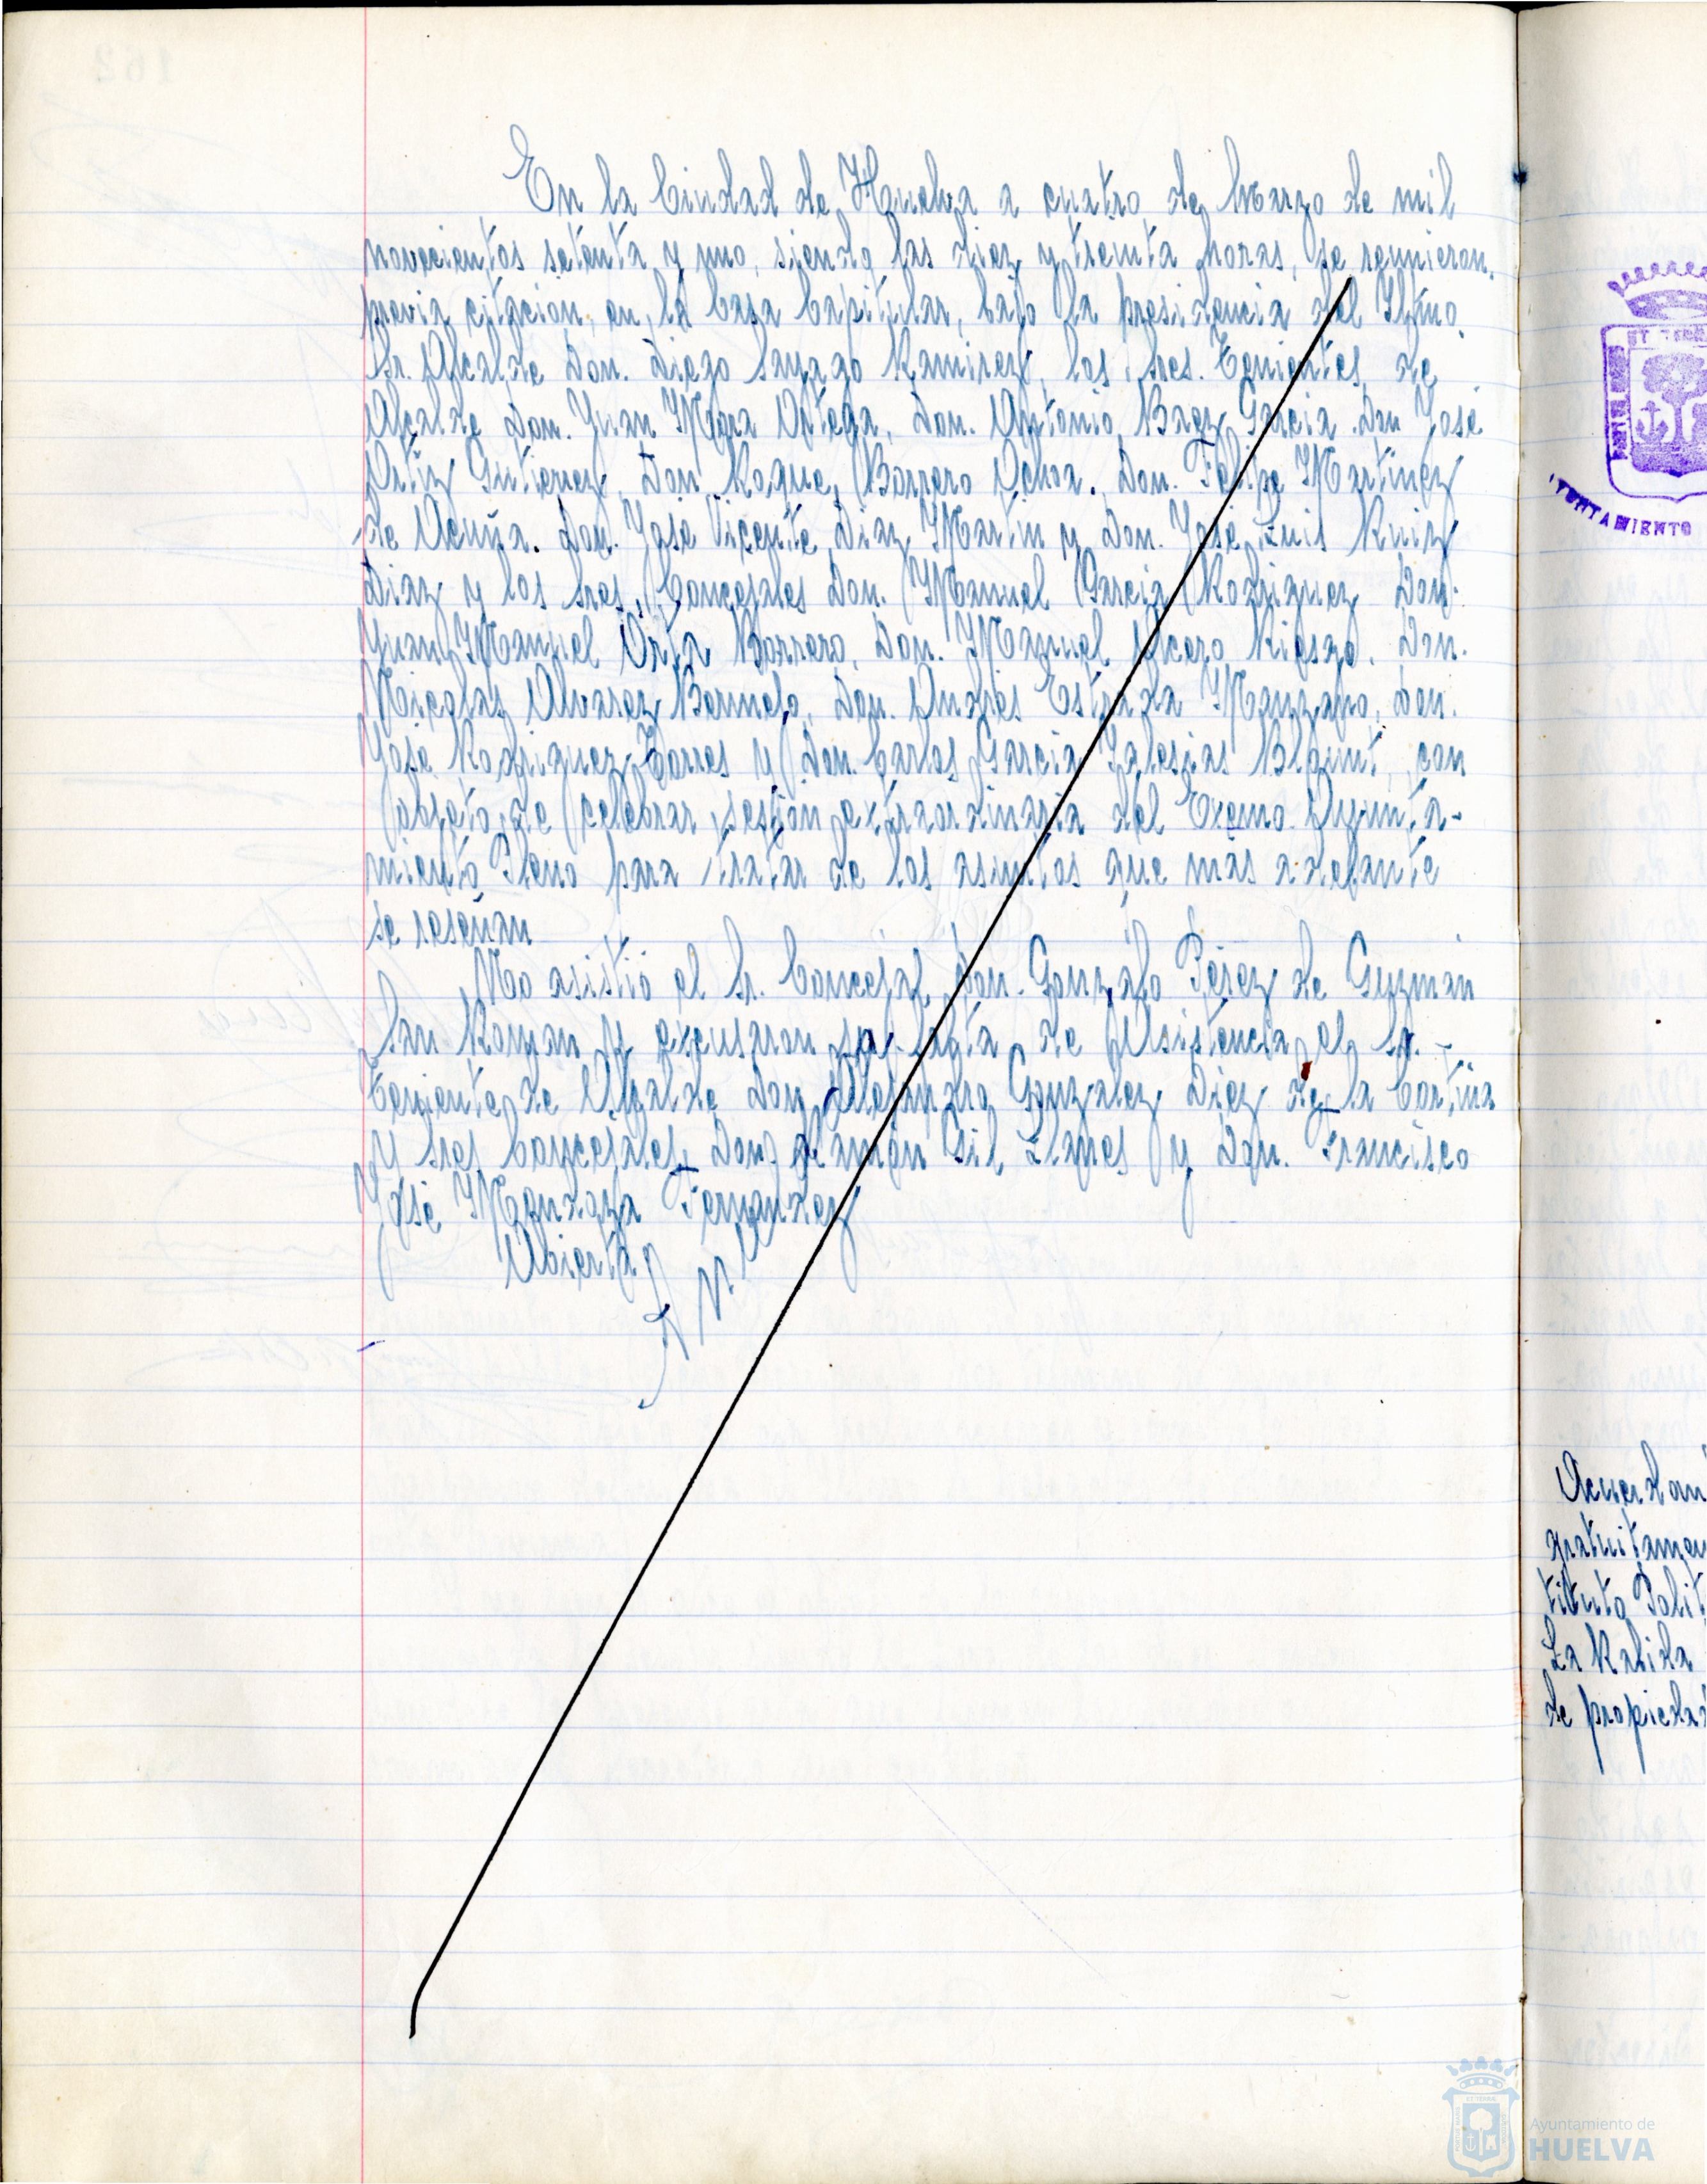 En la Ciudad de Huelva a cuatro de Marzo de mil
novecientos setenta y uno, siendo las diez y treinta horas, se reunieron,
previa citacion, en la Casa Capitular, bajo la presidencia del Iltmo.
Sr. Alcalde Don. Diego Sayago Ramirez, los Sres. Tenientes de
Alcalde Don. Juan Mora Ortega, Don. Antonio Baez Garcia. Don José
Ortiz Gutierrez, Don. Roque Borrero Ochoa. Don. Felipe Martinez
de Acuña. Don. José Vicente Diaz Martin y Don. José Luis Ruiz
Diaz y los Sres. Concejales Don. Manuel Garcia Rodriguez Don.
Juan Manuel Orta Borrero, Don. Manuel Ucero Don.
Nicolas Alvarez Bermejo, Don. Andres Estrada Manzano, Don.
José Rodriguez Torres y Don. Carlos Garcia Iglesias Blount, con
objeto de celebrar sesion extraordinaria del Excmo. Ayunta-
miento Pleno para tratar de los asuntos que más adelante
se reseñan
No asistió el Sr. Concejal Don. Gonzalo Pérez de Guzmán
San Roman y excusaron su falta de Asistencia el Sr. -
Teniente de Alcalde Don Alejandro Gonzalez Diez de la Cortina
y Sres Concejales Don. Ramón Gil Llanes y Don. Francisco
José Mendoza Fernandez
Abierta
162
AYUNTAMIENTO
Acuerdan
gratuitamen
tituto Polit
La Rabida
de propiedad
Ayuntamiento de
HUELVA